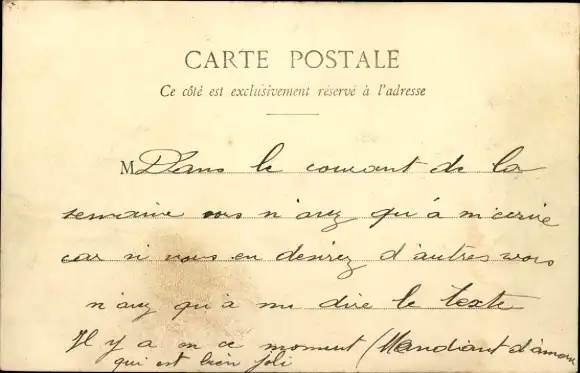 CARTE POSTALE
Ce côté est exclusivement réservé à l'adresse
M Dans le courant de la
semaine vous n'avez qu'à m'ecrire
car si vous en desirez d'autres vous
n'avez qu'à me dire le texte
Il y a en ce moment (Mandiant d'amour
qui est bien joli